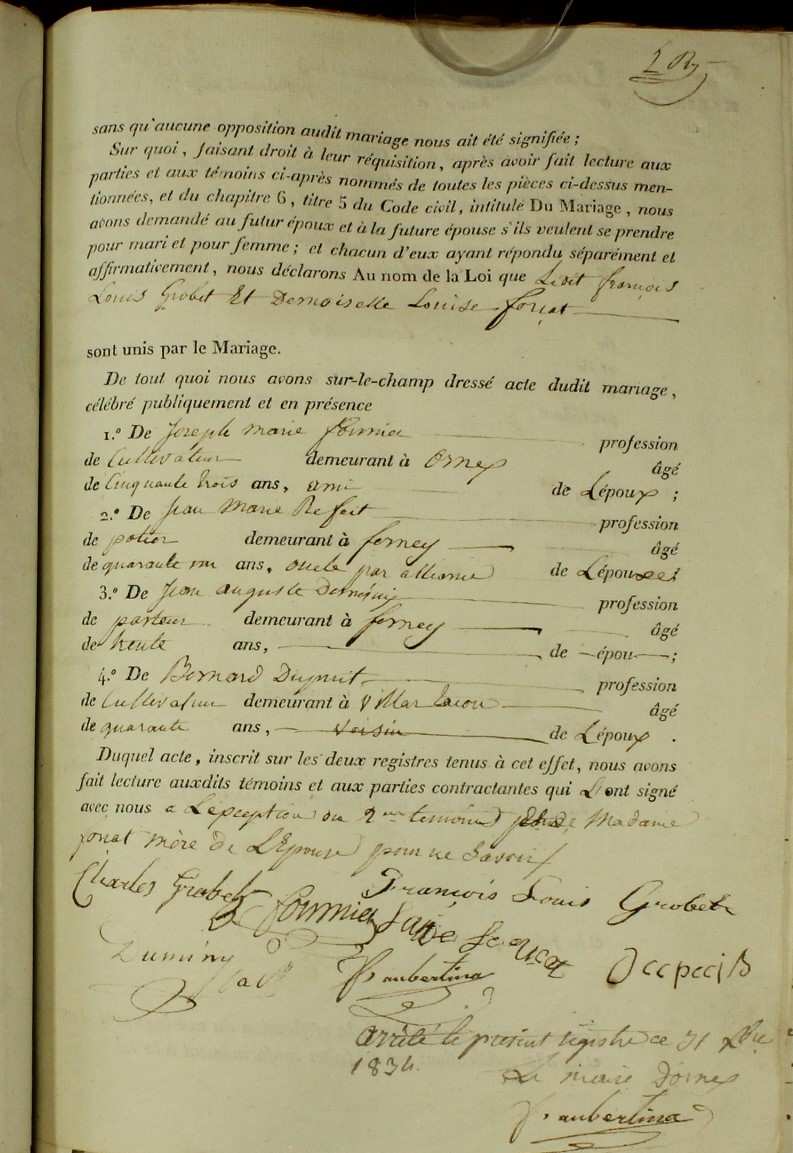 sans qu'aucune opposition audit mariage nous ait été signifiée ;
Sur quoi, faisant droit à leur réquisition, après avoir fait lecture aux
parties et aux témoins ci-après nommés de toutes les pièces ci-dessus men-
tionnées, et du chapitre 6, titre 5 du Code civil, intitulé Du Mariage, nous
avons demandé au futur époux et à la future épouse s'ils veulent se prendre
pour mari et pour femme ; et chacun d'eux ayant répondu séparément et
affirmativement, nous déclarons Au nom de la Loi que Ledit françois
Louis Grobet Et Demoiselle Louise
sont unis par le Mariage.
De tout quoi nous avons sur-le-champ dressé acte dudit mariage,
célébré publiquement et en présence
1.º De Joseph Marie fournier profession
de Cultivateur demeurant à Ornex âgé
de Cinquante trois ans, ami de Lépoux ;
2.º De Jean Marie profession
de potier demeurant à ferney âgé
de quarante ans, oncle par alliance de Lépouse ;
3.º De Jean auguste profession
de demeurant à ferney âgé
de trente ans, de épou ;
4.º De Bernard profession
de Cultivateur demeurant à âgé
de quarante ans, voisin de Lépoux .
Duquel acte, inscrit sur les deux registres tenus à cet effet, nous avons
fait lecture auxdits témoins et aux parties contractantes qui L'ont signé
avec nous a L'exception du 2me temoin de Madame
mère de L'Epouse pour ne Savoir
Charles Grobet François Louis Grobet
fournier
Duminy
arrêté le présent registre ce 31 Xbre
1834.
Le maire Dornex